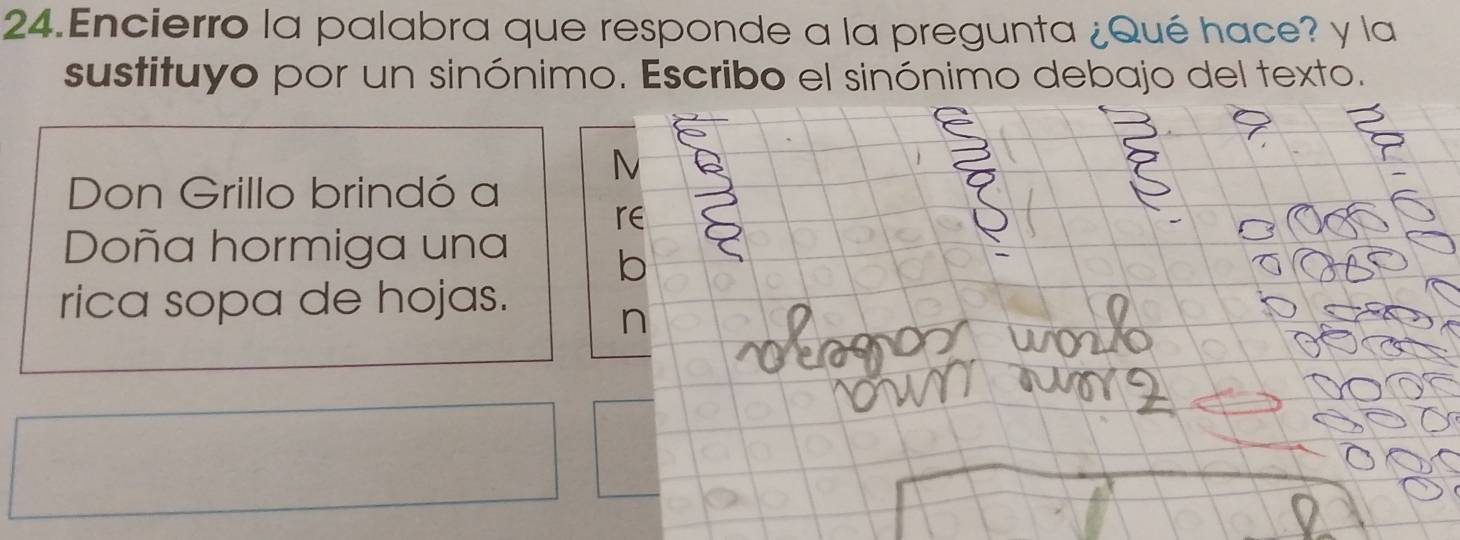 24.Encierro la palabra que responde a la pregunta ¿Qué hace? y la
sustituyo por un sinónimo. Escribo el sinónimo debajo del texto.
Don Grillo brindó a
Doña hormiga una
rica sopa de hojas.
M
re
b
n
mas.
a.
na.
gran cabeza
una